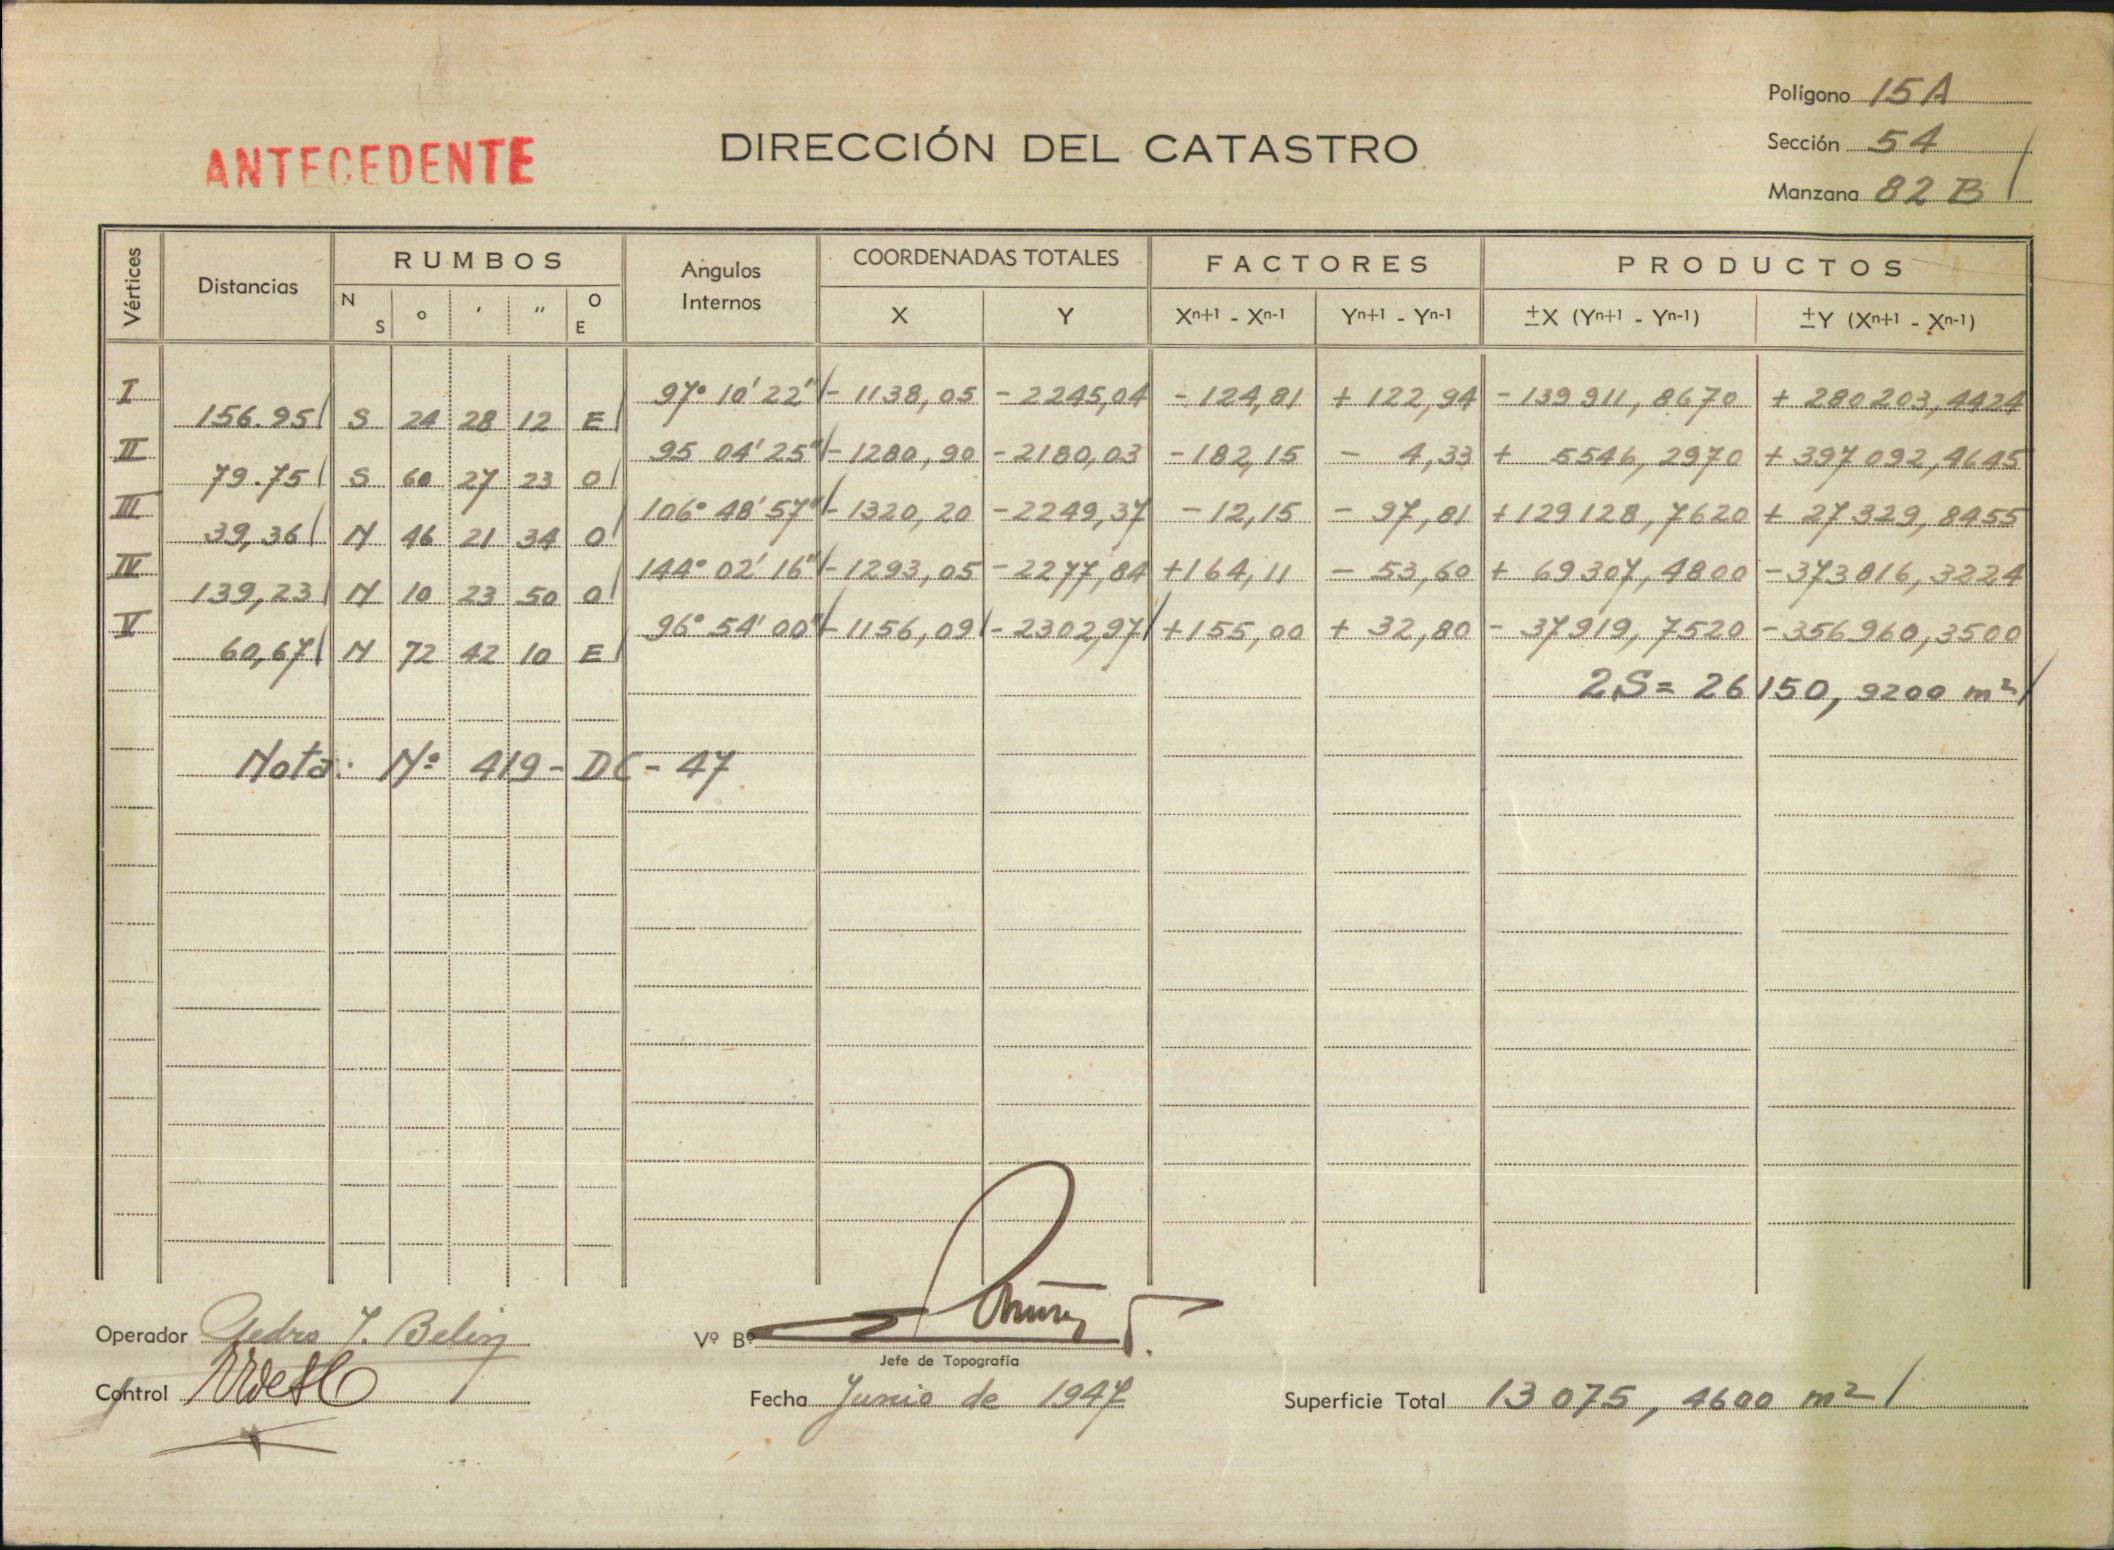 Polígono 15A
ANTECEDENTE
DIRECCIÓN DEL CATASTRO
Sección 54
Manzana 82 B
Vértices Distancias RUMBOS Angulos Internos COORDENADAS TOTALES FACTORES PRODUCTOS
N S º ' " O E X Y Xⁿ⁺¹ - Xⁿ⁻¹ Yⁿ⁺¹ - Yⁿ⁻¹ ±X (Yⁿ⁺¹ - Yⁿ⁻¹) ±Y (Xⁿ⁺¹ - Xⁿ⁻¹)
I 97° 10' 22" - 1138,05 - 2245,04 - 124,81 + 122,94 - 139 911, 8670 + 280 203, 4424
156.95 S 24 28 12 E
II 95 04' 25" - 1280,90 - 2180,03 - 182,15 - 4,33 + 5546, 2970 + 397 092, 4645
79.75 S 60 27 23 O
III 106° 48' 57" - 1320,20 - 2249,37 - 12,15 - 97,81 + 129 128, 7620 + 27 329, 8455
39,36 N 46 21 34 O
IV 144° 02' 16" - 1293,05 - 2277,84 + 164,11 - 53,60 + 69 307, 4800 - 373 816, 3224
139,23 N 10 23 50 O
V 96° 54' 00" - 1156,09 - 2302,97 + 155,00 + 32,80 - 37 919, 7520 - 356 960, 3500
60,67 N 72 42 10 E
2S = 26 150, 9200 m²
Nota: Nº 419 - DC - 47
Operador Pedro
Vº Bº
Jefe de Topografía
Control
Fecha Junio de 1947
Superficie Total 13 075, 4600 m²